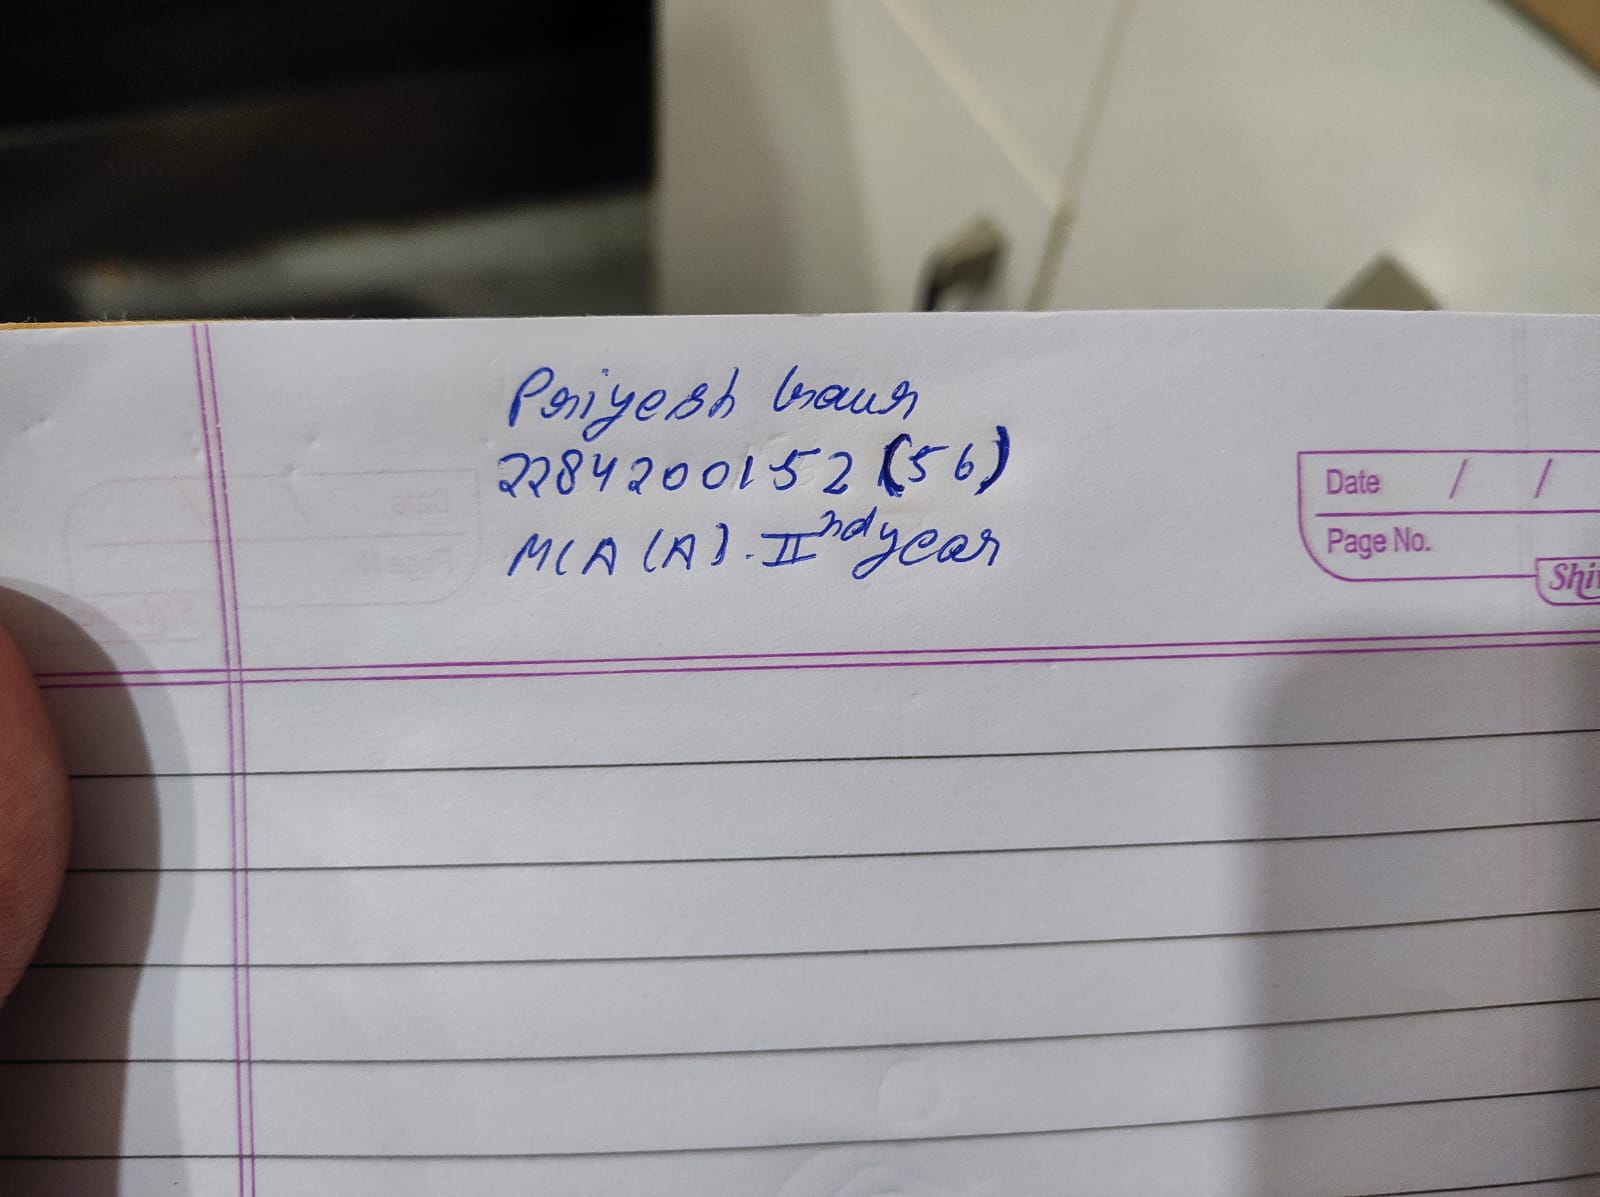 Priyesh Gaur
2284200152 (56)
MCA (A). IInd year
Date / /
Page No.